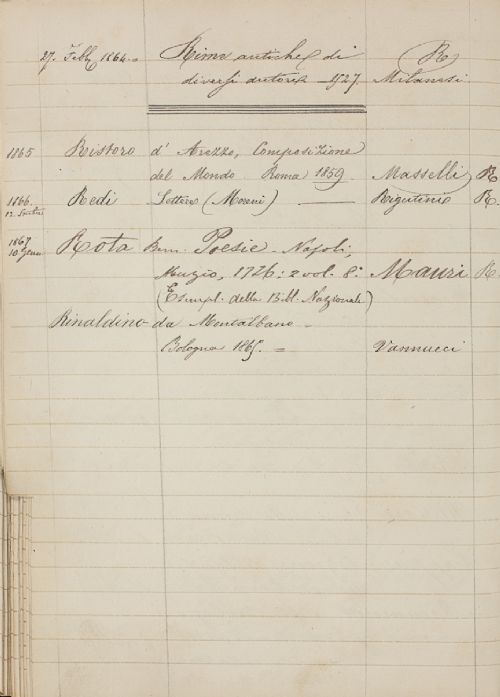 27. Febb. 1864. Rime antiche di R
diversi autori 1527. Milanesi
1865 Ristoro d' Arezzo, Composizione
del Mondo Roma 1859 Masselli R
1866. Redi Lettere (Moreni) — Rigutini R.
12.
1867 Rota Bern. Poesie. Napoli,
10 Genn.
Muzio, 1726: 2 vol. 8.° Mauri R
(Esempl. della Bibl. Nazionale)
Rinaldino da Montalbano
Bologna 1865. = Vannucci